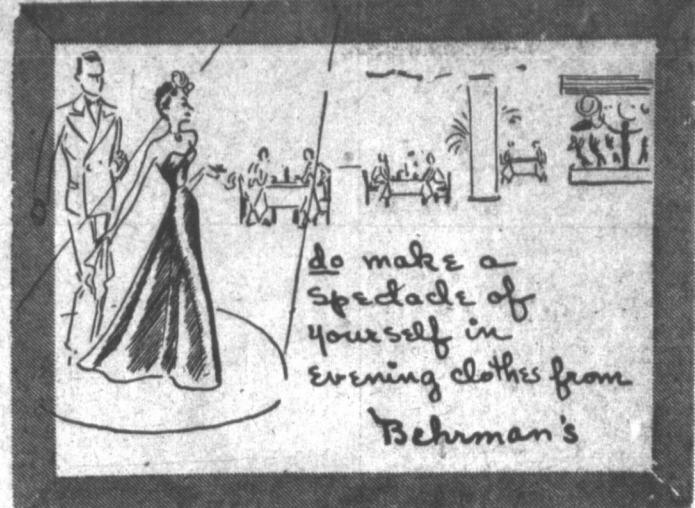 do make a
spectacle of
yourself in
evening clothes from
Behrman's